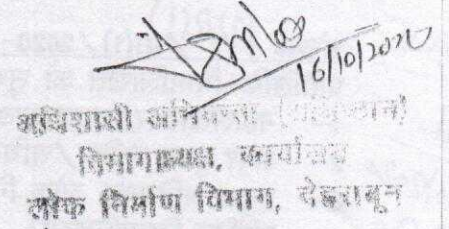 16/10/2020
अधिशासी अभियन्ता (अधिष्ठान)
विभागाध्यक्ष, कार्यालय
लोक निर्माण विभाग, देहरादून